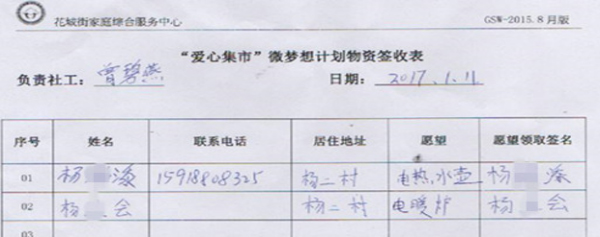 花城街家庭综合服务中心 GSW-2015.8月版
“爱心集市”微梦想计划物资签收表
负责社工：曾碧燕 日期：2017.1.11
序号 姓名 联系电话 居住地址 愿望 愿望领取签名
01 杨 15918808325 杨二村 电热水壶 杨
02 杨 会 杨二村 电暖炉 杨 会
03